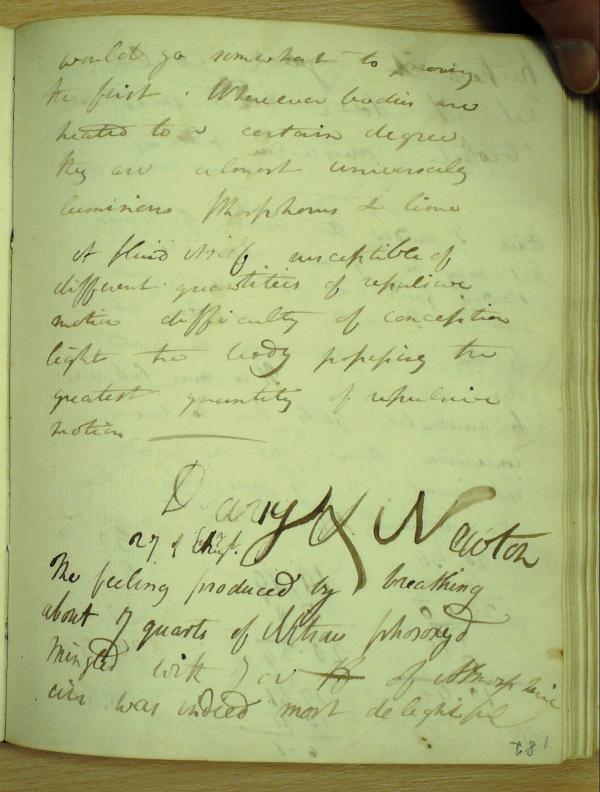 would go somewhat to proving
the first. Whenever bodies are
heated to a certain degree
they are almost universally
luminious Phosphorus & lime
A fluid itself susceptible of
different quantities of repulsive
motion difficulty of conception
light the body possessing the
greatest quantity of repulsive
motion
Davy & Newton
27 of
The feeling produced by breathing
about 7 quarts of Nitrous phosoxyd
Mingled with 7 or of Atmospheric
air was indeed most delightful